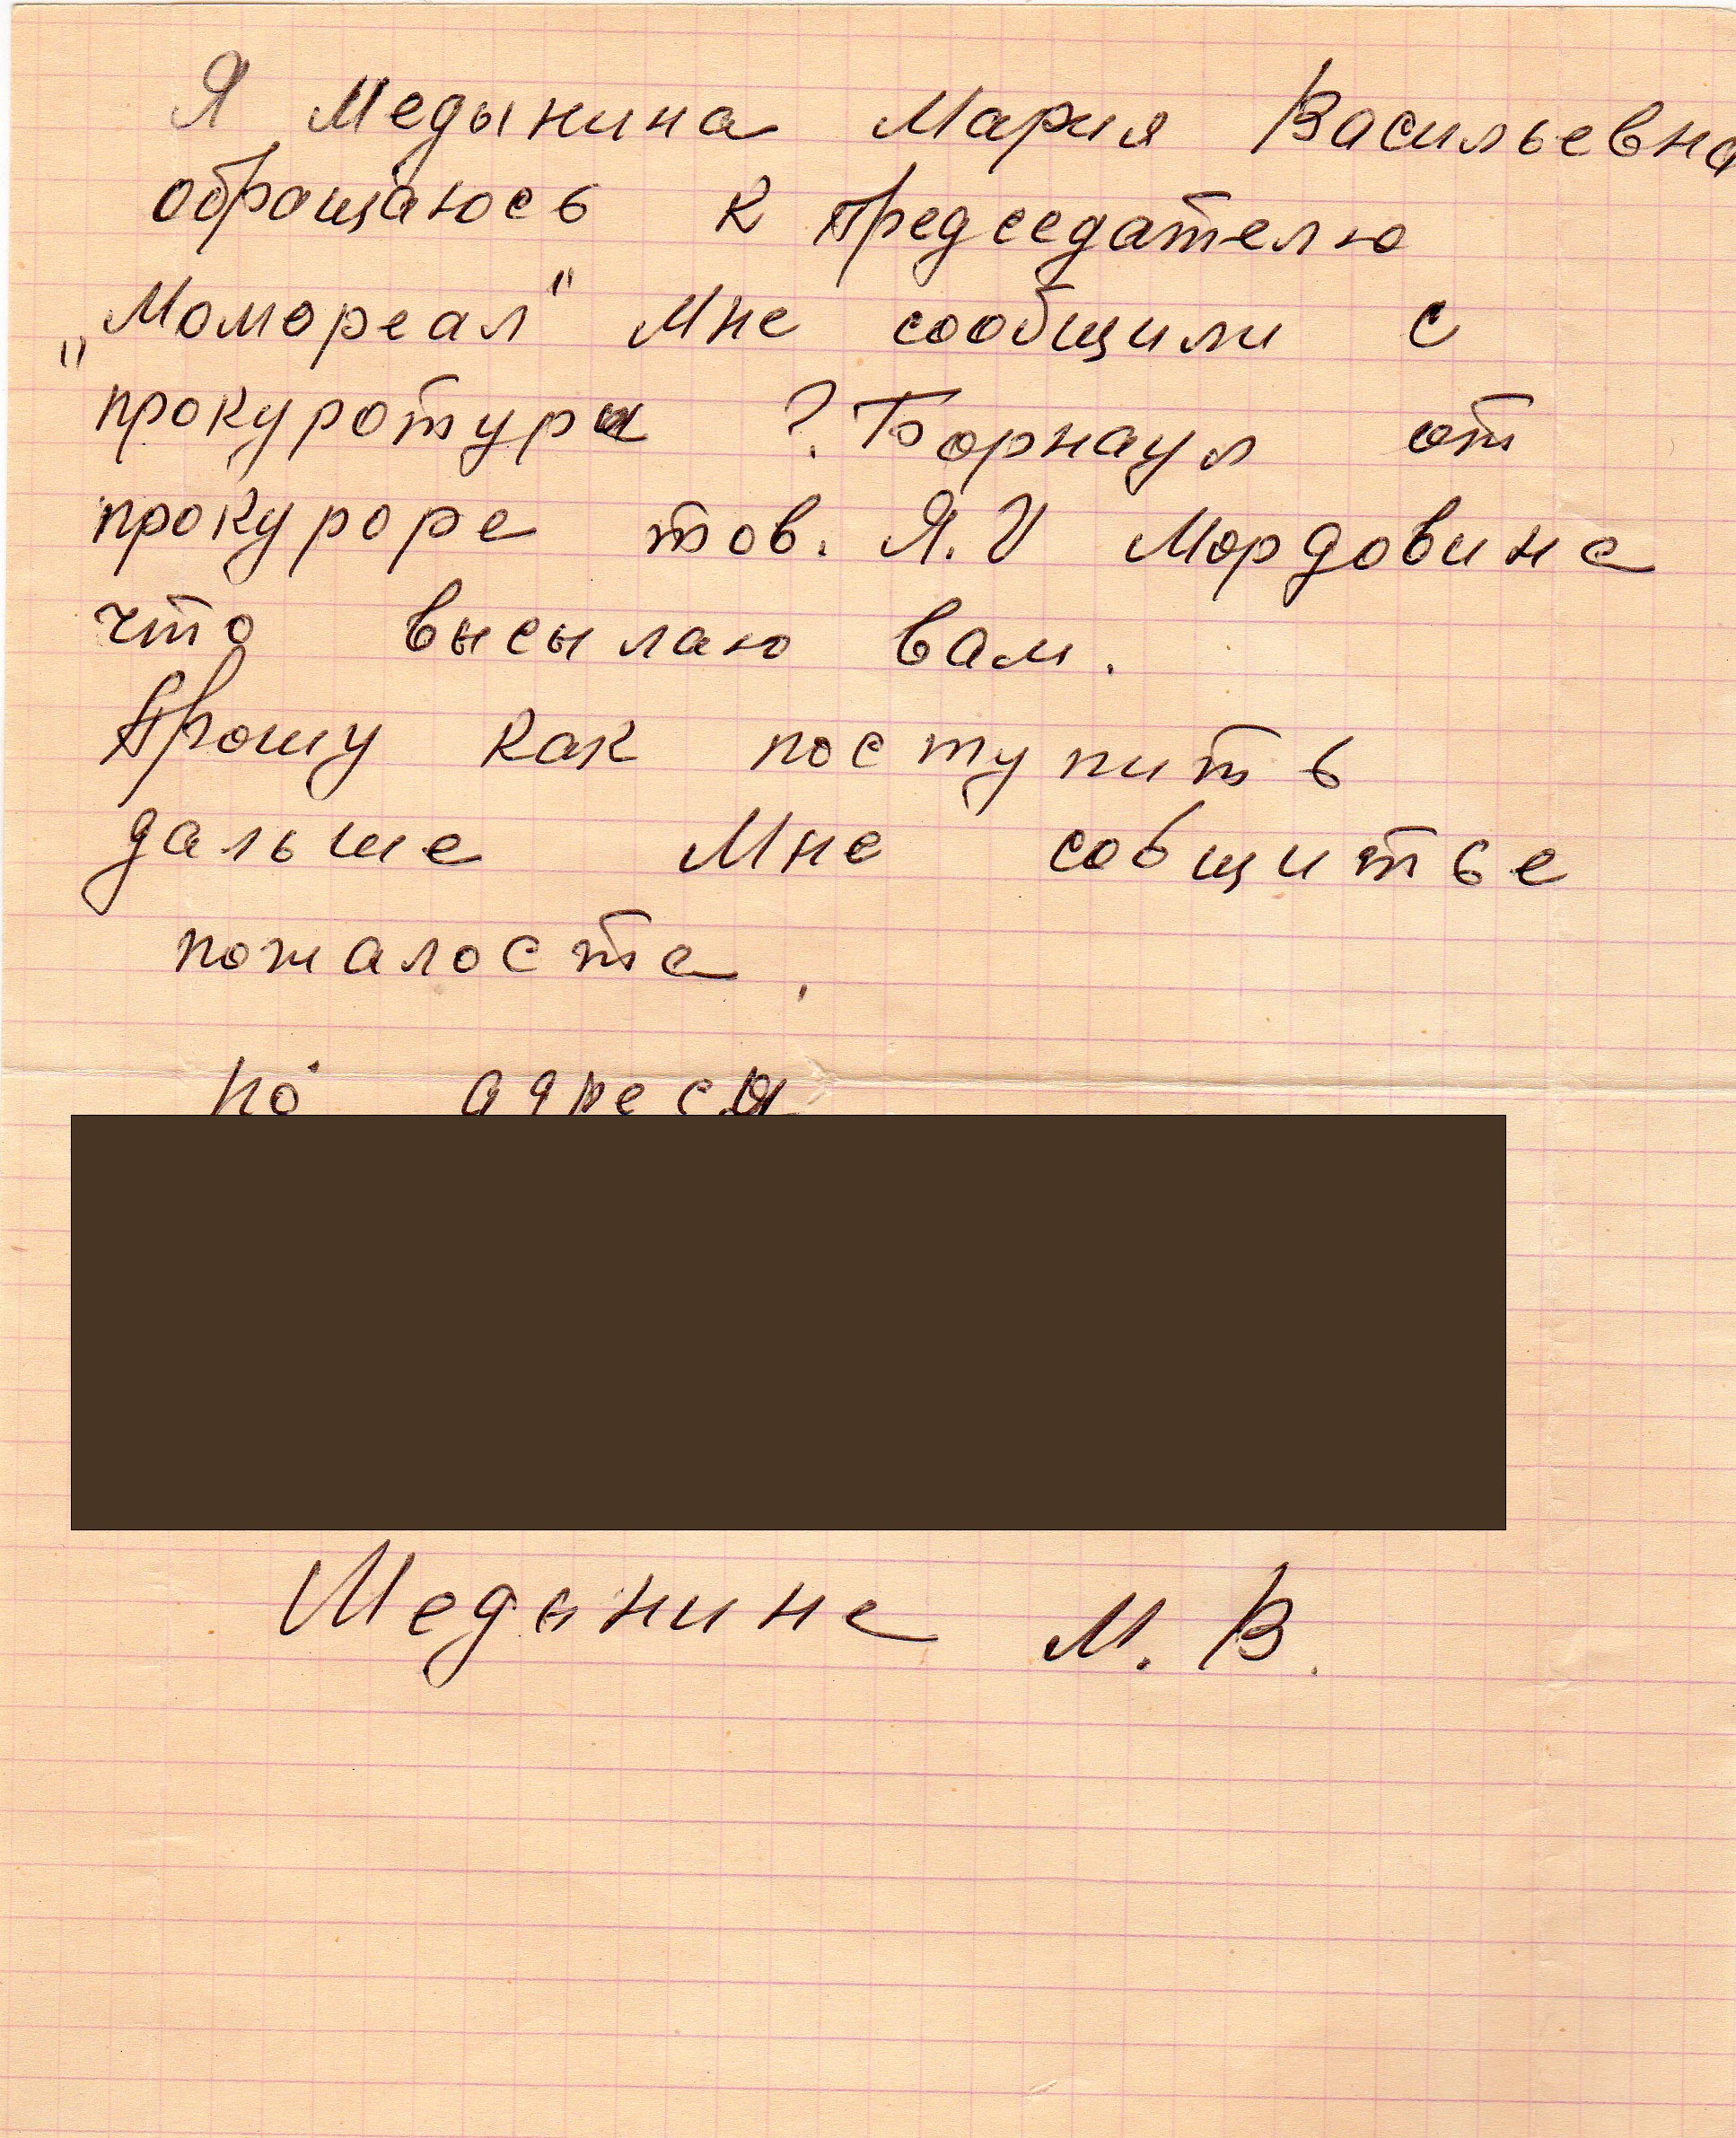 Я Медынина Мария Васильевна
обращаюсь к председателю
"Момореал" Мне сообщили с
прокуротуры г. Борнаул от
прокуроре тов. Я. И Мордовина
что высылаю вам.
Прошу как поступить
дальше Мне собщитье
пожалоста.
по адреся
Медынине М. В.